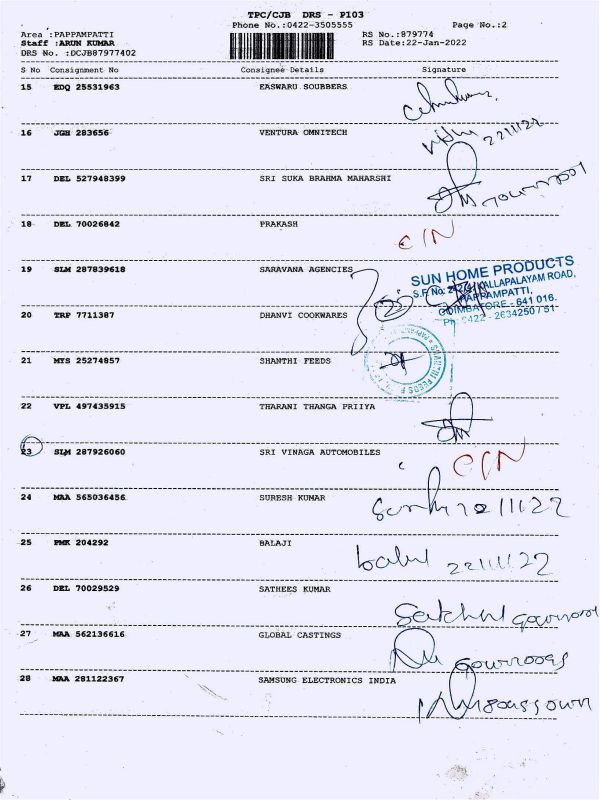 TPC/CJB DRS - P103
Phone No.:0422-3505555
Page No.:2
Area :PAPPAMPATTI
RS No.:879774
Staff :ARUN KUMAR
RS Date:22-Jan-2022
DRS No. :DCJB87977402
S No Consignment No Consignee Details Signature
15 EDQ 25531963 EASWARU SOUBBERS
16 JGH 283656 VENTURA OMNITECH
22/1/22
17 DEL 527948399 SRI SUKA BRAHMA MAHARSHI
18 DEL 70026842 PRAKASH
C/N
19 SLM 287839618 SARAVANA AGENCIES
SUN HOME PRODUCTS
PAPPAMPATTI,
COIMBATORE - 641 016.
Ph:0422 - 2634250 / 51
20 TRP 7711387 DHANVI COOKWARES
21 MYS 25274857 SHANTHI FEEDS
SHANTHI FEEDS
22 VPL 497435915 THARANI THANGA PRIIYA
23 SLM 287926060 SRI VINAGA AUTOMOBILES
C/N
24 MAA 565036456 SURESH KUMAR
25 PMK 204292 BALAJI
22/1/22
26 DEL 70029529 SATHEES KUMAR
27 MAA 562136616 GLOBAL CASTINGS
28 MAA 281122367 SAMSUNG ELECTRONICS INDIA